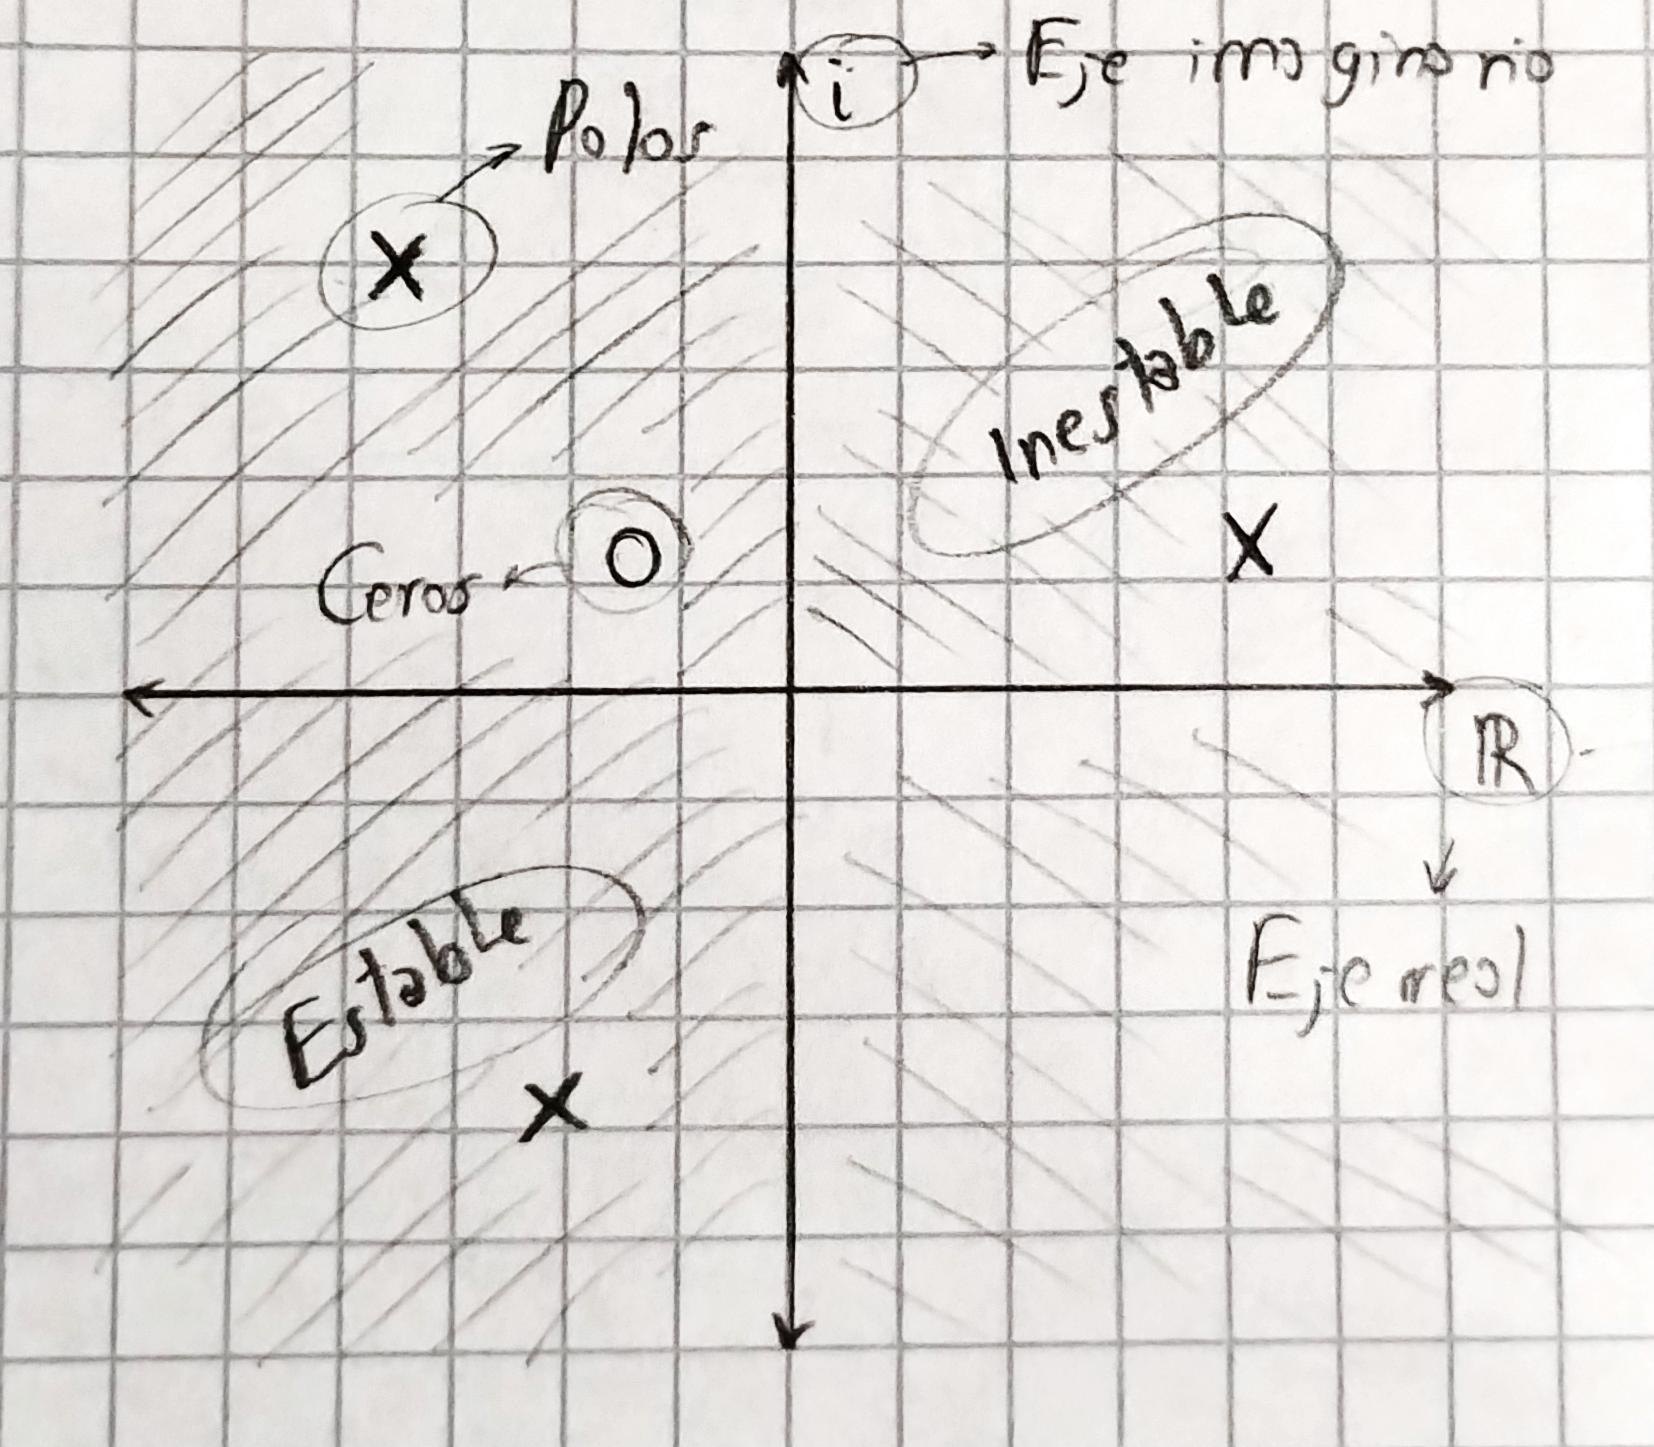 i
Eje imaginario
Polos
X
Inestable
X
O
Ceros
R
Eje real
Estable
X